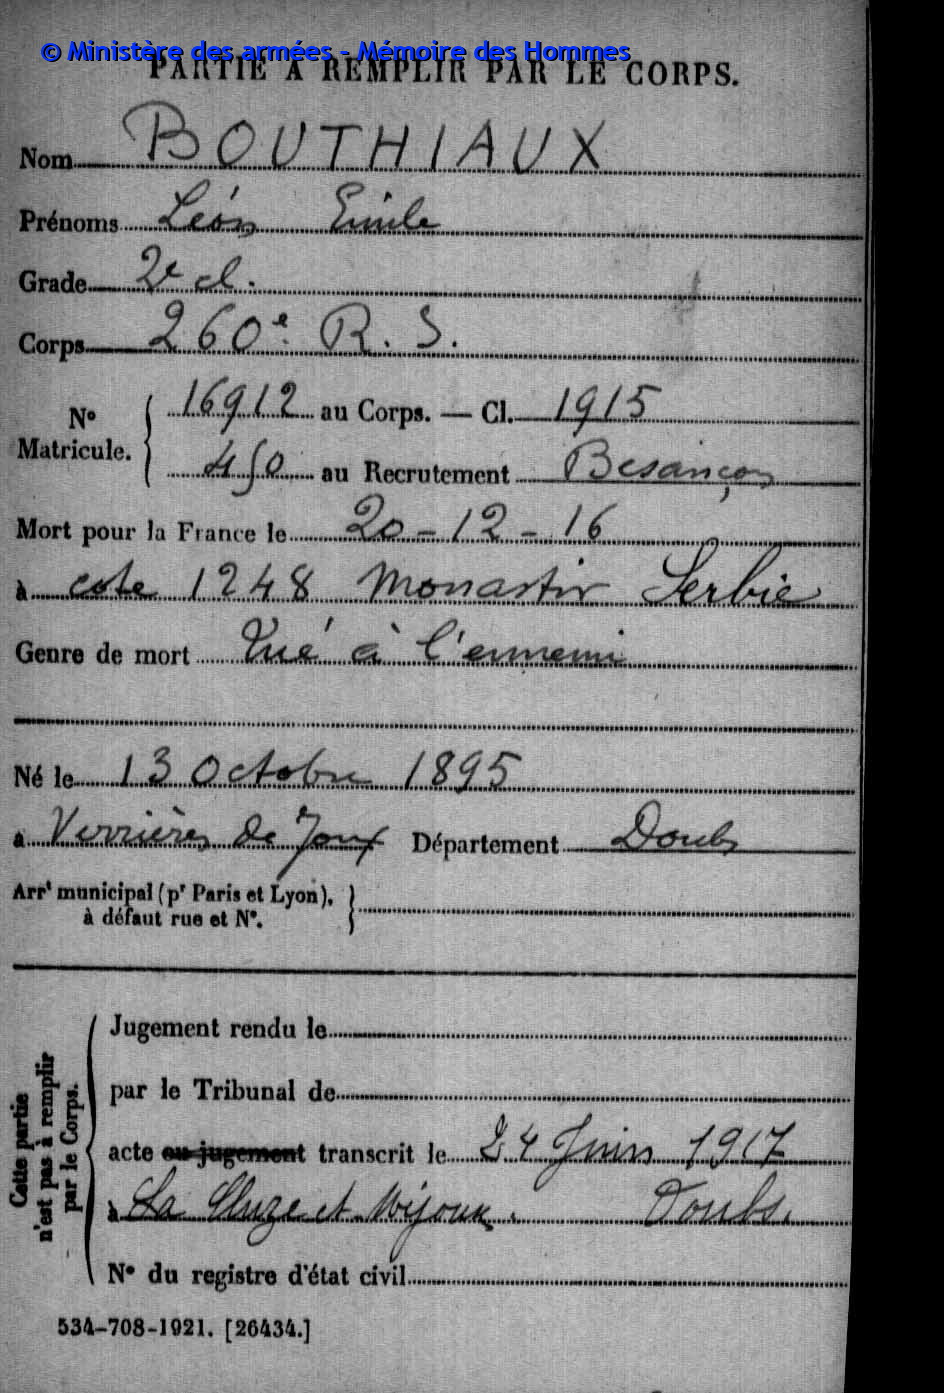 © Ministère des armées - Mémoire des Hommes
PARTIE A REMPLIR PAR LE CORPS.
Nom BOUTHIAUX
Prénoms Léon Emile
Grade 2e cl.
Corps 260e R. I.
No Matricule. { 16912 au Corps. — Cl. 1915
450 au Recrutement Besançon
Mort pour la France le 20-12-16
à cote 1248 Monastir Serbie
Genre de mort Tué à l'ennemi
Né le 13 Octobre 1895
à Verrières de Joux Département Doubs
Arrt municipal (pr Paris et Lyon),
à défaut rue et No.
Cette partie
n'est pas à remplir
par le Corps.
Jugement rendu le
par le Tribunal de
acte ou jugement transcrit le 24 Juin 1917
à La Cluze et Mijoux. Doubs.
No du registre d'état civil
534-708-1921. [26434.]